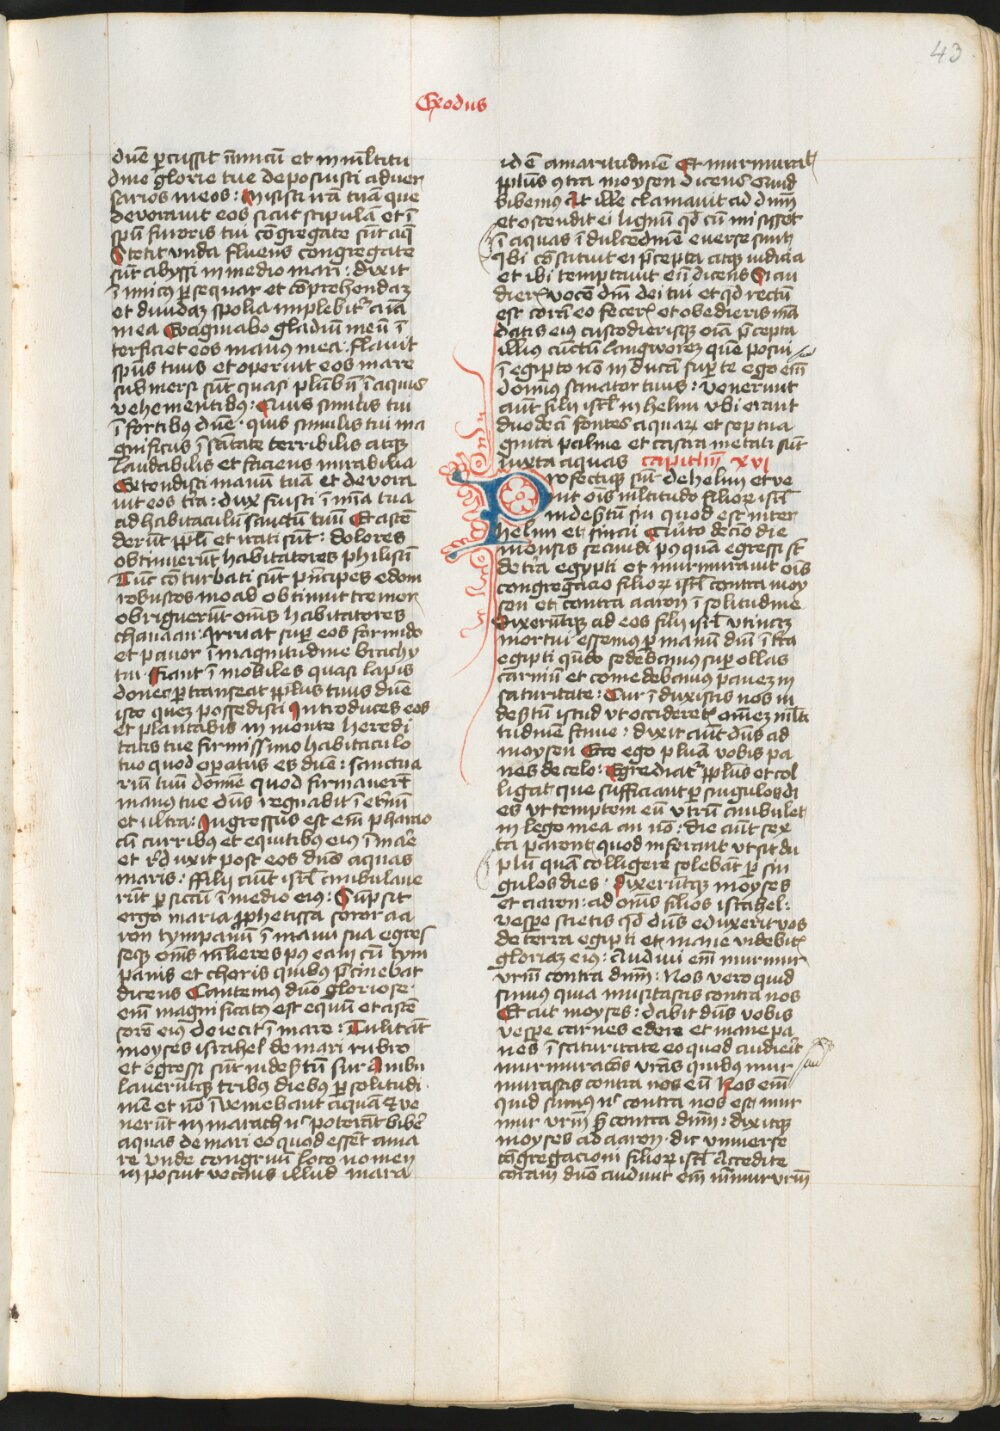 43
Exodus
dn̄e ꝑcussit īimicū et in m̄ltitu
dine glorie tue deposuisti aduer
sarios meos : Misisti irā tuā que
deuorauit eos sicut stipulā et ī
sp̄u furoris tui cōgregate sūt aq̄
Stetit unda fluens congregate
sūt abyssi in medio mari : dixit
īimicꝰ ꝑsequar et cōprehendaꝫ
et diuidaꝫ spolia implebitᷣ aīa
mea Euaginabo gladiū meū ī
terficiet eos manꝰ mea . flauit
sp̄us tuus et operuit eos mare
submersi sūt quasi plūbū ī aquis
vehementibꝰ : Quis similis tui
ī fortibus dn̄e . quis similis tui ma
gnificus ī sāctitate terribilis atqꝫ
laudabilis et faciens mirabilia
Extendisti manū tuā et deuora
uit eos tr̄a : dux fuisti ī mīa tua
ad habitaculū sanctū tuū Et ascē
derūt ppl̄i et irati sūt : dolores
obtinuerūt habitatores philistī
Tūc cōturbati sūt p̄ncipes edom
robustos moab obtinuit tremor
obriguerūt om̄s habitatores
chanaan : Irruat suꝑ eos formido
et pauor ī magnitudine brachij
tui . Fiant ī mobiles quasi lapis
donec ꝑtranseat ppl̄us tuus dn̄e
iste quez possedisti Introduces eos
et plantabis in monte heredi
tatis tue firmissimo habitaculo
tuo quod oꝑatus es dn̄e : sanctua
riū tuū domine quod firmauerūt
manꝰ tue dn̄s regnabit ī et̄nū
et ultra : Ingressus est em̄ pharao
cū curribus et equitibus eiꝰ ī mare
et rͥduxit post eos dn̄s aquas
maris : ffilij aūt isrl̄ ambulaue
rūt ꝑ siccū ī medio eiꝰ : Sūpsit
ergo maria ꝓphetissa soror aa
ron tympanū ī manu sua egres
seqꝫ om̄s mulieres pꝰ eam cū tym
panis et choris quibꝰ p̄cinebat
dicens Cantemꝰ dn̄o gloriose .
em̄ magnificatꝰ est equū et ascē
sorē eiꝰ deiecit ī mare : Tulit aūt
moyses israhel de mari rubro
et egressi sūt ī desertū sur Ambu
lauerūtqꝫ tribꝰ diebꝰ ꝑ solitudi
nē et nō īueniebant aquā Et ve
nerūt in marach nͨ poterāt bibe͛
aquas de mari eo quod essēt ama
re unde congruū loco nomen
inposuit vocans illud mara
id ē amaritudinē Et murmurat
ppl̄us ꝯtra moysen dicens Quid
bibemus At ille clamauit ad dn̄m
et ostendit ei lignū qd̄ cū misisset
ī aquas ī dulcedinē v̄erse sunt
Ibi cōstituit ei p̄cepta atqꝫ iudicia
et ibi temptauit eū dicens Si au
dierꝭ vocē dn̄i dei tui et qd̄ rectū
est corā eo fecerꝭ et obedieris mā
datis eiꝰ custodierisqꝫ oīa p̄cepta
illius cūctū langworeꝫ quē posui
ī egipto nō īducā suꝑ te ego em̄
dominꝰ sanator tuus : venerunt
aūt filij isrl̄ in helim ubi erant
duodecī fontes aquaꝝ et septua
ginta palme et castra metati sūt
iuxta aquas capitlm̄ xvi
Profectiqꝫ sūt de helim et ve
nit om̄is m̄ltitudo filioꝝ isrl̄
in desertū sin quod est inter
helim et sinai Quīto decīo die
mensis secundi pꝰquā egressi st̄
de t̄ra egypti et murmurauit om̄is
congregacio filioꝝ isrl̄ contra moy
sen et contra aaron ī solitudine
Dixerūtqꝫ ad eos filij isrl̄ vtinaꝫ
mortui essemus ꝑ manū dn̄i ī t̄ra
egipti qn̄do sedebamus suꝑ ollas
carniū et comedebamus paneꝫ in
saturitate : Cur īduxistis nos in
desertū istud vt occideretꝭ omneꝫ ml̄ti
tudinē fame : dixit aūt dn̄s ad
moysen Ecce ego pluā vobis pa
nes de celo : Egrediatᷣ ppl̄us et col
ligat que sufficiant ꝑ singulos di
es vt temptem eū vtrū ambulet
in lege mea an nō : die aūt sex
ta parent quod inferant vt sit du
plū quā colligere solebāt ꝑ sin
gulos dies . Dixerūtqꝫ moyses
et aaron : ad om̄s filios israhel :
vespe scietis qd̄ dn̄s eduxerit vos
de terra egipti et mane videbitꝭ
gloriaꝫ eiꝰ : Audiui em̄ murmur
vrm̄ contra dn̄m : Nos vero quid
simus quia musitastis contra nos
Et ait moyses : dabit dn̄s vobis
vespe carnes edere et mane pa
nes ī saturitate eo quod audierit
murmuracōes vr̄as quibus mur
murastis contra nos eū Nos em̄
quid sumꝰ nͨ contra nos est mur
mur vrm̄ s̄ contra dn̄m : dixitqꝫ
moyses ad aaron . dic vniuerse
cōgregacioni filioꝝ isrl̄ Accedite
coram dn̄o audiuit em̄ murmur vrm̄